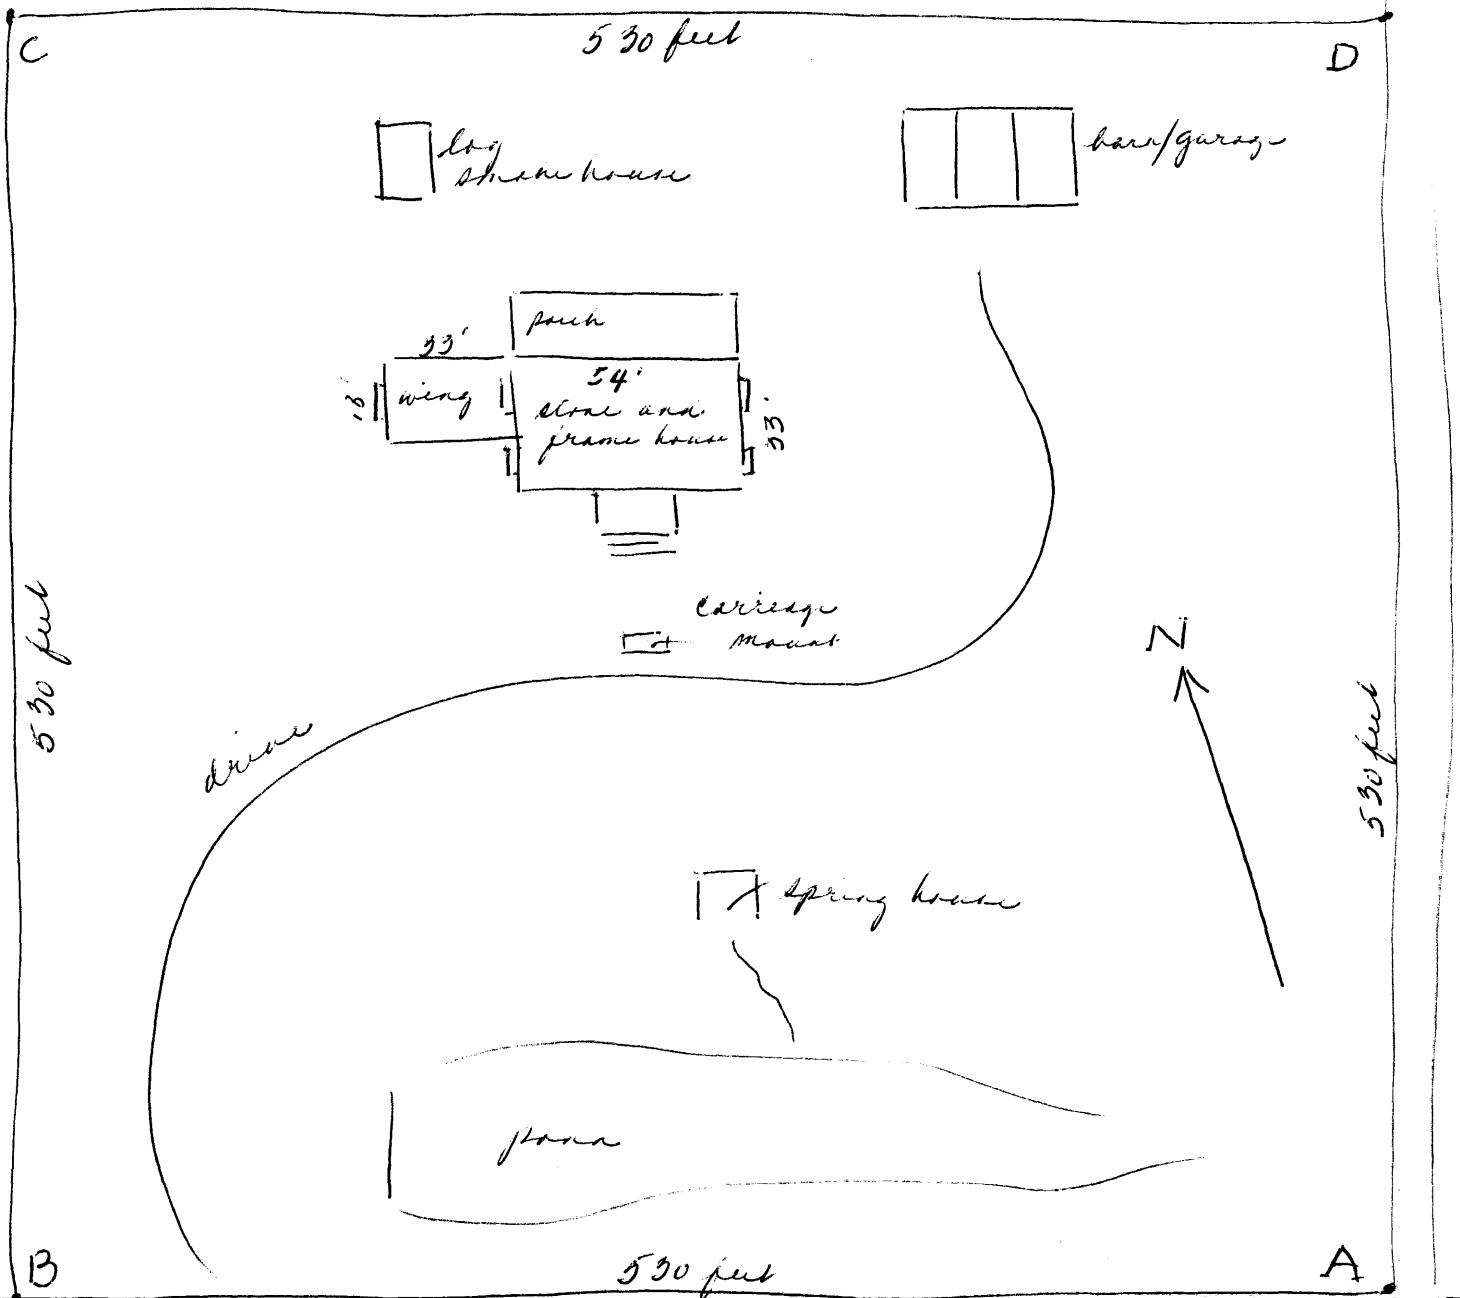 C
530 feet
D
log
smoke house
barn/garage
porch
33'
54'
18'
wing
stone and
frame house
33'
carriage
mount
N
530 feet
530 feet
drive
spring house
pond
B
530 feet
A